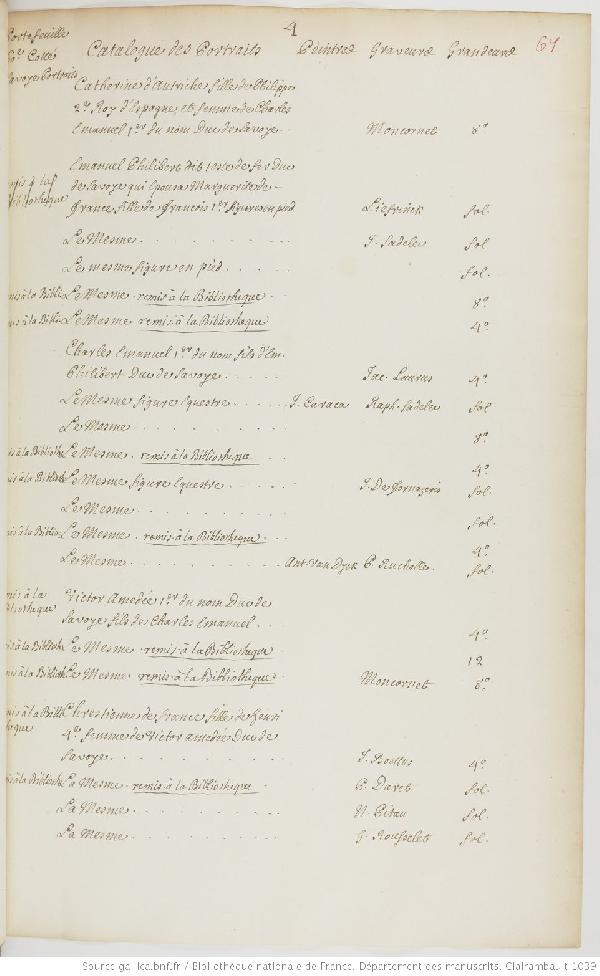 4
Portefeuille
Catalogue des Portraits Peintres Graveurs Grandeurs 67
Savoye Portraits
Catherine d'Autriche fille de Philippes
2.e Roy d'Espagne, et femme de Charles
Emanuel 1.er du nom Duc de Savoye. Moncornet 8.º
Emanuel Philibert dit teste de fer Duc
de Savoye qui épousa Marguerite de
Bibliotheque France fille de François 1.er figure en pied Liefrinck fol.
Le Mesme J. Sadeler fol
Le mesme figure en pied fol.
mis à la Bibli Le Mesme. remis à la Bibliotheque 8º
mis à la Biblio Le Mesme. remis à la Bibliotheque 4º
Charles Emanuel 1.er du nom fils d'Em.
Philibert Duc de Savoye Jac. Laurus 4º
Le Mesme figure Equestre J. Caraca Raph. Sadeler fol
Le Mesme 8º
mis à la Biblioth Le Mesme. remis à la Bibliotheque 4º
mis à la Biblioth Le Mesme figure Equestre J. De Fornazeris fol.
Le Mesme fol.
mis à la Biblio Le Mesme. remis à la Bibliotheque. 4º
Le Mesme Ant. Van Dyck P. Rucholle. fol.
mis à la Victor Amedée 1.er du nom Duc de
Bibliotheque Savoye fils de Charles Emanuel 4º
mis à la Biblioth Le Mesme. remis à la Bibliotheque 12
mis à la Biblioth Le Mesme. remis à la Bibliotheque Moncornet 8º
mis à la Bibli Chrestienne de france fille de Henri
theque 4.e femme de Victor amedée Duc de
Savoye J. Boullus 4º
mis à la Biblioth La Mesme. remis à la Bibliotheque P. Daret fol.
La Mesme N. Pitau fol.
La Mesme G. Rousselet fol.
Source gallica.bnf.fr / Bibliothèque nationale de France. Département des manuscrits. Clairambault 1039